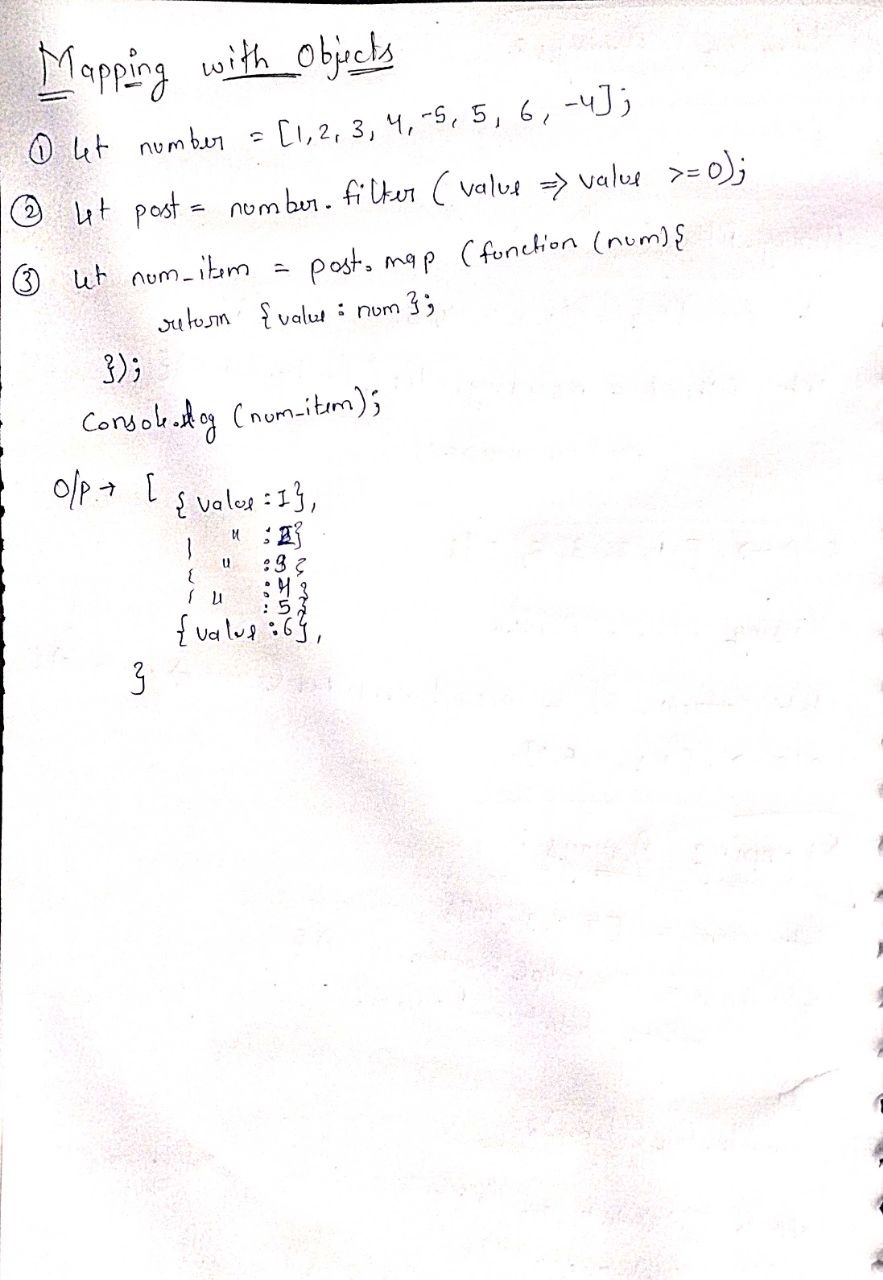 Mapping with Objects
① let number = [1, 2, 3, 4, -5, 5, 6, -4];
② let post = number.filter (value => value >= 0);
③ let num_item = post.map (function (num) {
return {value : num};
});
Console.log (num_item);
O/p → [ {value : 1},
" : 2}
{ " : 3}
{ " : 4}
: 5}
{value : 6},
}